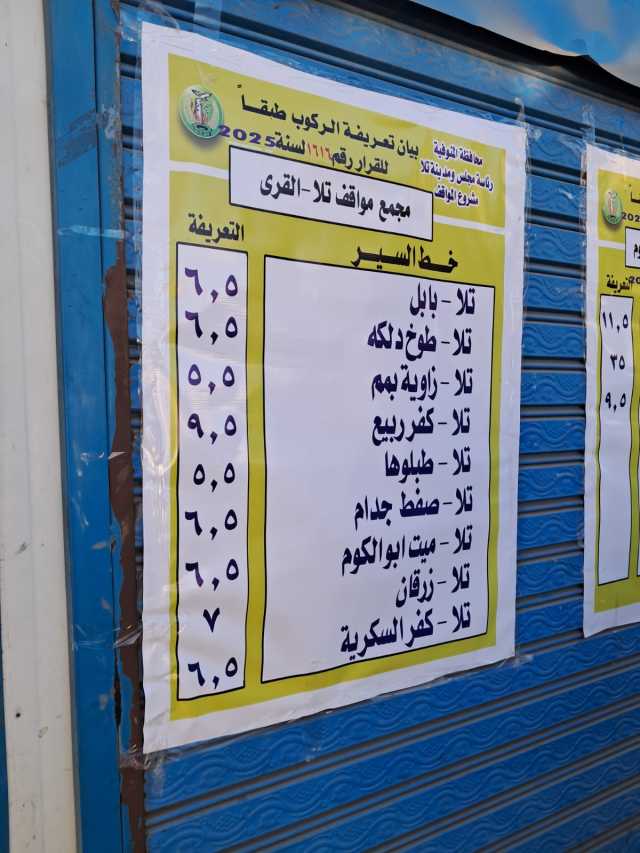 محافظة المنوفية
رئاسة مجلس ومدينة تلا
مشروع المواقف
بيان تعريفة الركوب طبقاً
للقرار رقم ١٦١٦ لسنة 2025
مجمع مواقف تلا-القرى
خط السير التعريفة
تلا - بابل ٦,٥
تلا - طوخ دلكه ٦,٥
تلا - زاوية بمم ٥,٥
تلا - كفر ربيع ٩,٥
تلا - طبلوها ٥,٥
تلا - صفط جدام ٦,٥
تلا - ميت ابو الكوم ٦,٥
تلا - زرقان ٧
تلا - كفر السكرية ٦,٥
التعريفة
١١,٥
٣٥
٩,٥